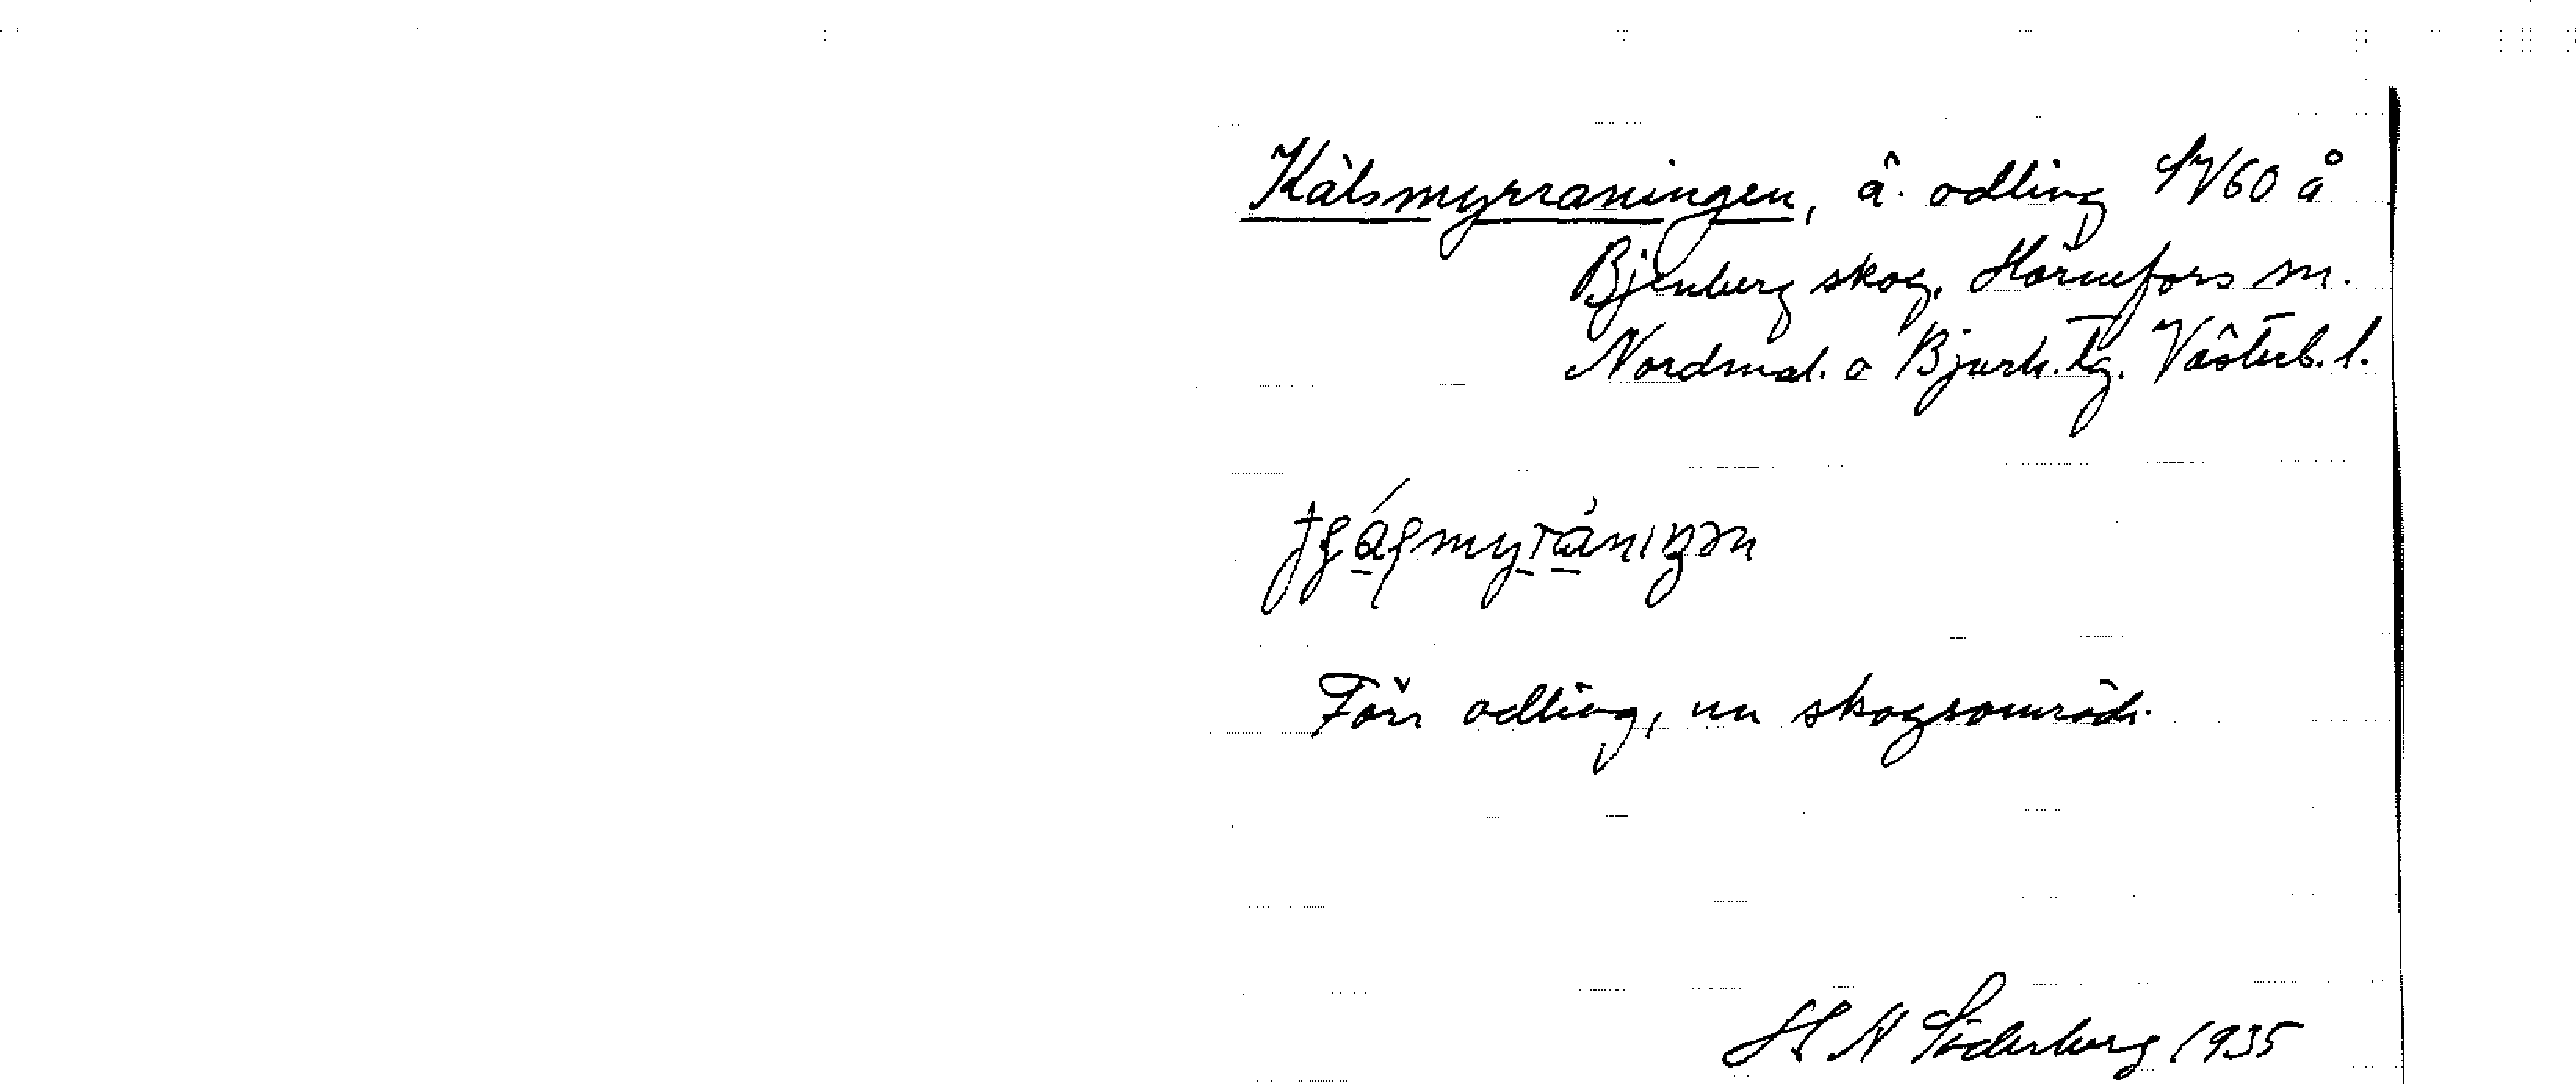 Kälsmyrraningen, ä. odling SV60 å
Bjenberg skog. Hörnefors sn.
Nordmal. o Bjurh. tg. Västerb. l.
Förr odling, nu skogsområde.
H N Söderberg 1935